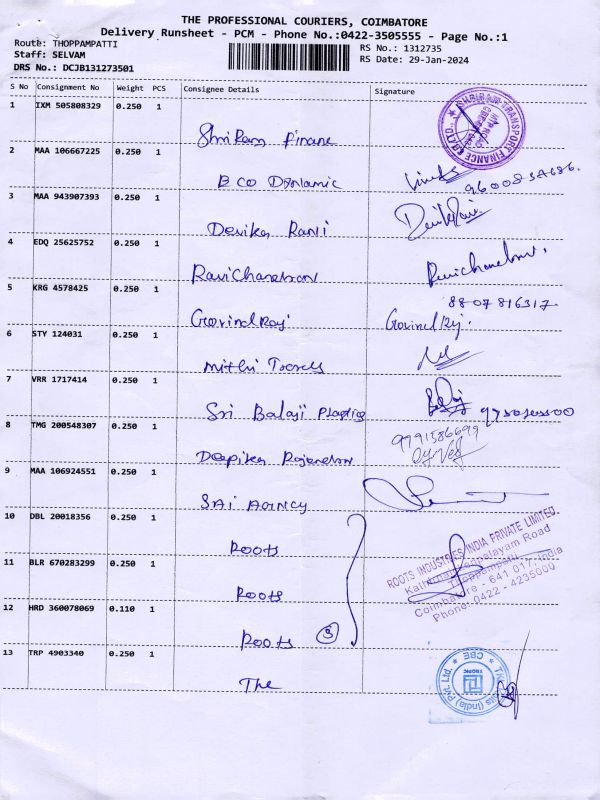 THE PROFESSIONAL COURIERS, COIMBATORE
Delivery Runsheet - PCM - Phone No.:0422-3505555 - Page No.:1
Route: THOPPAMPATTI
RS No.: 1312735
Staff: SELVAM
RS Date: 29-Jan-2024
DRS No.: DCJB131273501
S No Consignment No Weight PCS Consignee Details Signature
1 IXM 505808329 0.250 1
Shriram Finane
2 MAA 106667225 0.250 1
ECO Dynamic
3 MAA 943907393 0.250 1
Devika Rani
4 EDQ 25625752 0.250 1
Ravichandran
5 KRG 4578425 0.250 1
8807816317
Govind Raj
6 STY 124031 0.250 1
Mithi
7 VRR 1717414 0.250 1
Sri Balaji Plastics
8 TMG 200548307 0.250 1
9791586699
Deepika Rajendran
9 MAA 106924551 0.250 1
SAI Agency
10 DBL 20018356 0.250 1
Roots
11 BLR 670283299 0.250 1
Roots
12 HRD 360078069 0.110 1
Roots
3
13 TRP 4903340 0.250 1
The
SHRIRAM TRANSPORT FINANCE CO. LTD.
ROOTS INDUSTRIES INDIA PRIVATE LIMITED
Road
Thoppampatti
Coimbatore - 641 017, India
Phone: 0422 - 4235000
(India) Pvt. Ltd.
CBE